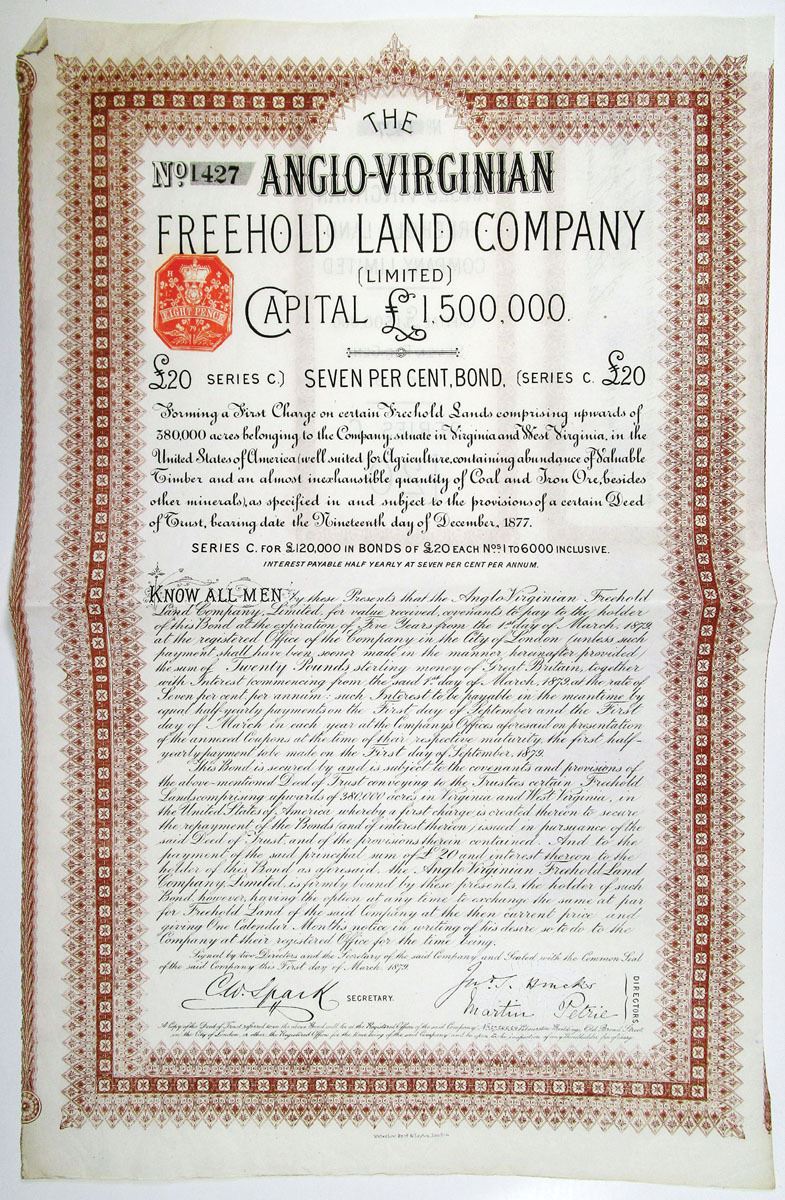 THE
No 1427 ANGLO-VIRGINIAN
FREEHOLD LAND COMPANY
(LIMITED)
EIGHT PENCE
CAPITAL £1,500,000.
£20 SERIES C.) SEVEN PER CENT, BOND, (SERIES C. £20
Forming a First Charge on certain Freehold Lands comprising upwards of
380,000 acres belonging to the Company, situate in Virginia and West Virginia, in the
United States of America (well suited for Agriculture, containing abundance of Valuable
Timber and an almost inexhaustible quantity of Coal and Iron Ore, besides
other minerals), as specified in and subject to the provisions of a certain Deed
of Trust, bearing date the Nineteenth day of December, 1877.
SERIES C. FOR £120,000 IN BONDS OF £20 EACH Nos 1 TO 6000 INCLUSIVE.
INTEREST PAYABLE HALF YEARLY AT SEVEN PER CENT PER ANNUM.
KNOW ALL MEN by these Presents that the Anglo Virginian Freehold
Land Company, Limited, for value received, covenants to pay to the holder
of this Bond at the expiration of Five Years from the 1st day of March, 1879,
at the registered Office of the Company in the City of London (unless such
payment shall have been sooner made in the manner hereinafter provided)
the sum of Twenty Pounds sterling money of Great Britain, together
with Interest (commencing from the said 1st day of March, 1879, at the rate of
Seven per cent per annum: such Interest to be payable in the meantime by
equal half-yearly payments on the First day of September and the First
day of March in each year at the Company's Offices aforesaid on presentation
of the annexed Coupons at the time of their respective maturity, the first half-
yearly payment to be made on the First day of September, 1879.
This Bond is secured by and is subject to the covenants and provisions of
the above-mentioned Deed of Trust conveying to the Trustees certain Freehold
Lands comprising upwards of 380,000 acres in Virginia and West Virginia, in
the United States of America whereby a first charge is created thereon to secure
the repayment of the Bonds (and of interest thereon) issued in pursuance of the
said Deed of Trust and of the provisions therein contained. And to the
payment of the said principal sum of £20 and interest thereon to the
holder of this Bond as aforesaid, the Anglo Virginian Freehold Land
Company, Limited, is firmly bound by these presents, the holder of such
Bond, however, having the option at any time to exchange the same at par
for Freehold Land of the said Company at the then current price and
giving One Calendar Months notice in writing of his desire so to do to the
Company at their registered Office for the time being.
Signed by two Directors and the Secretary of the said Company and Sealed with the Common Seal
of the said Company this First day of March 1879.
C. W. Spark SECRETARY.
Martin Petrie
DIRECTORS
A Copy of the Deed of Trust referred to in the above Bond will lie at the Registered Offices of the said Company, Old Broad Street
in the City of London, or other the Registered Offices for the time being of the said Company and be open to the inspection of any Bondholder free of charge.
Waterlow Bros & Layton, London